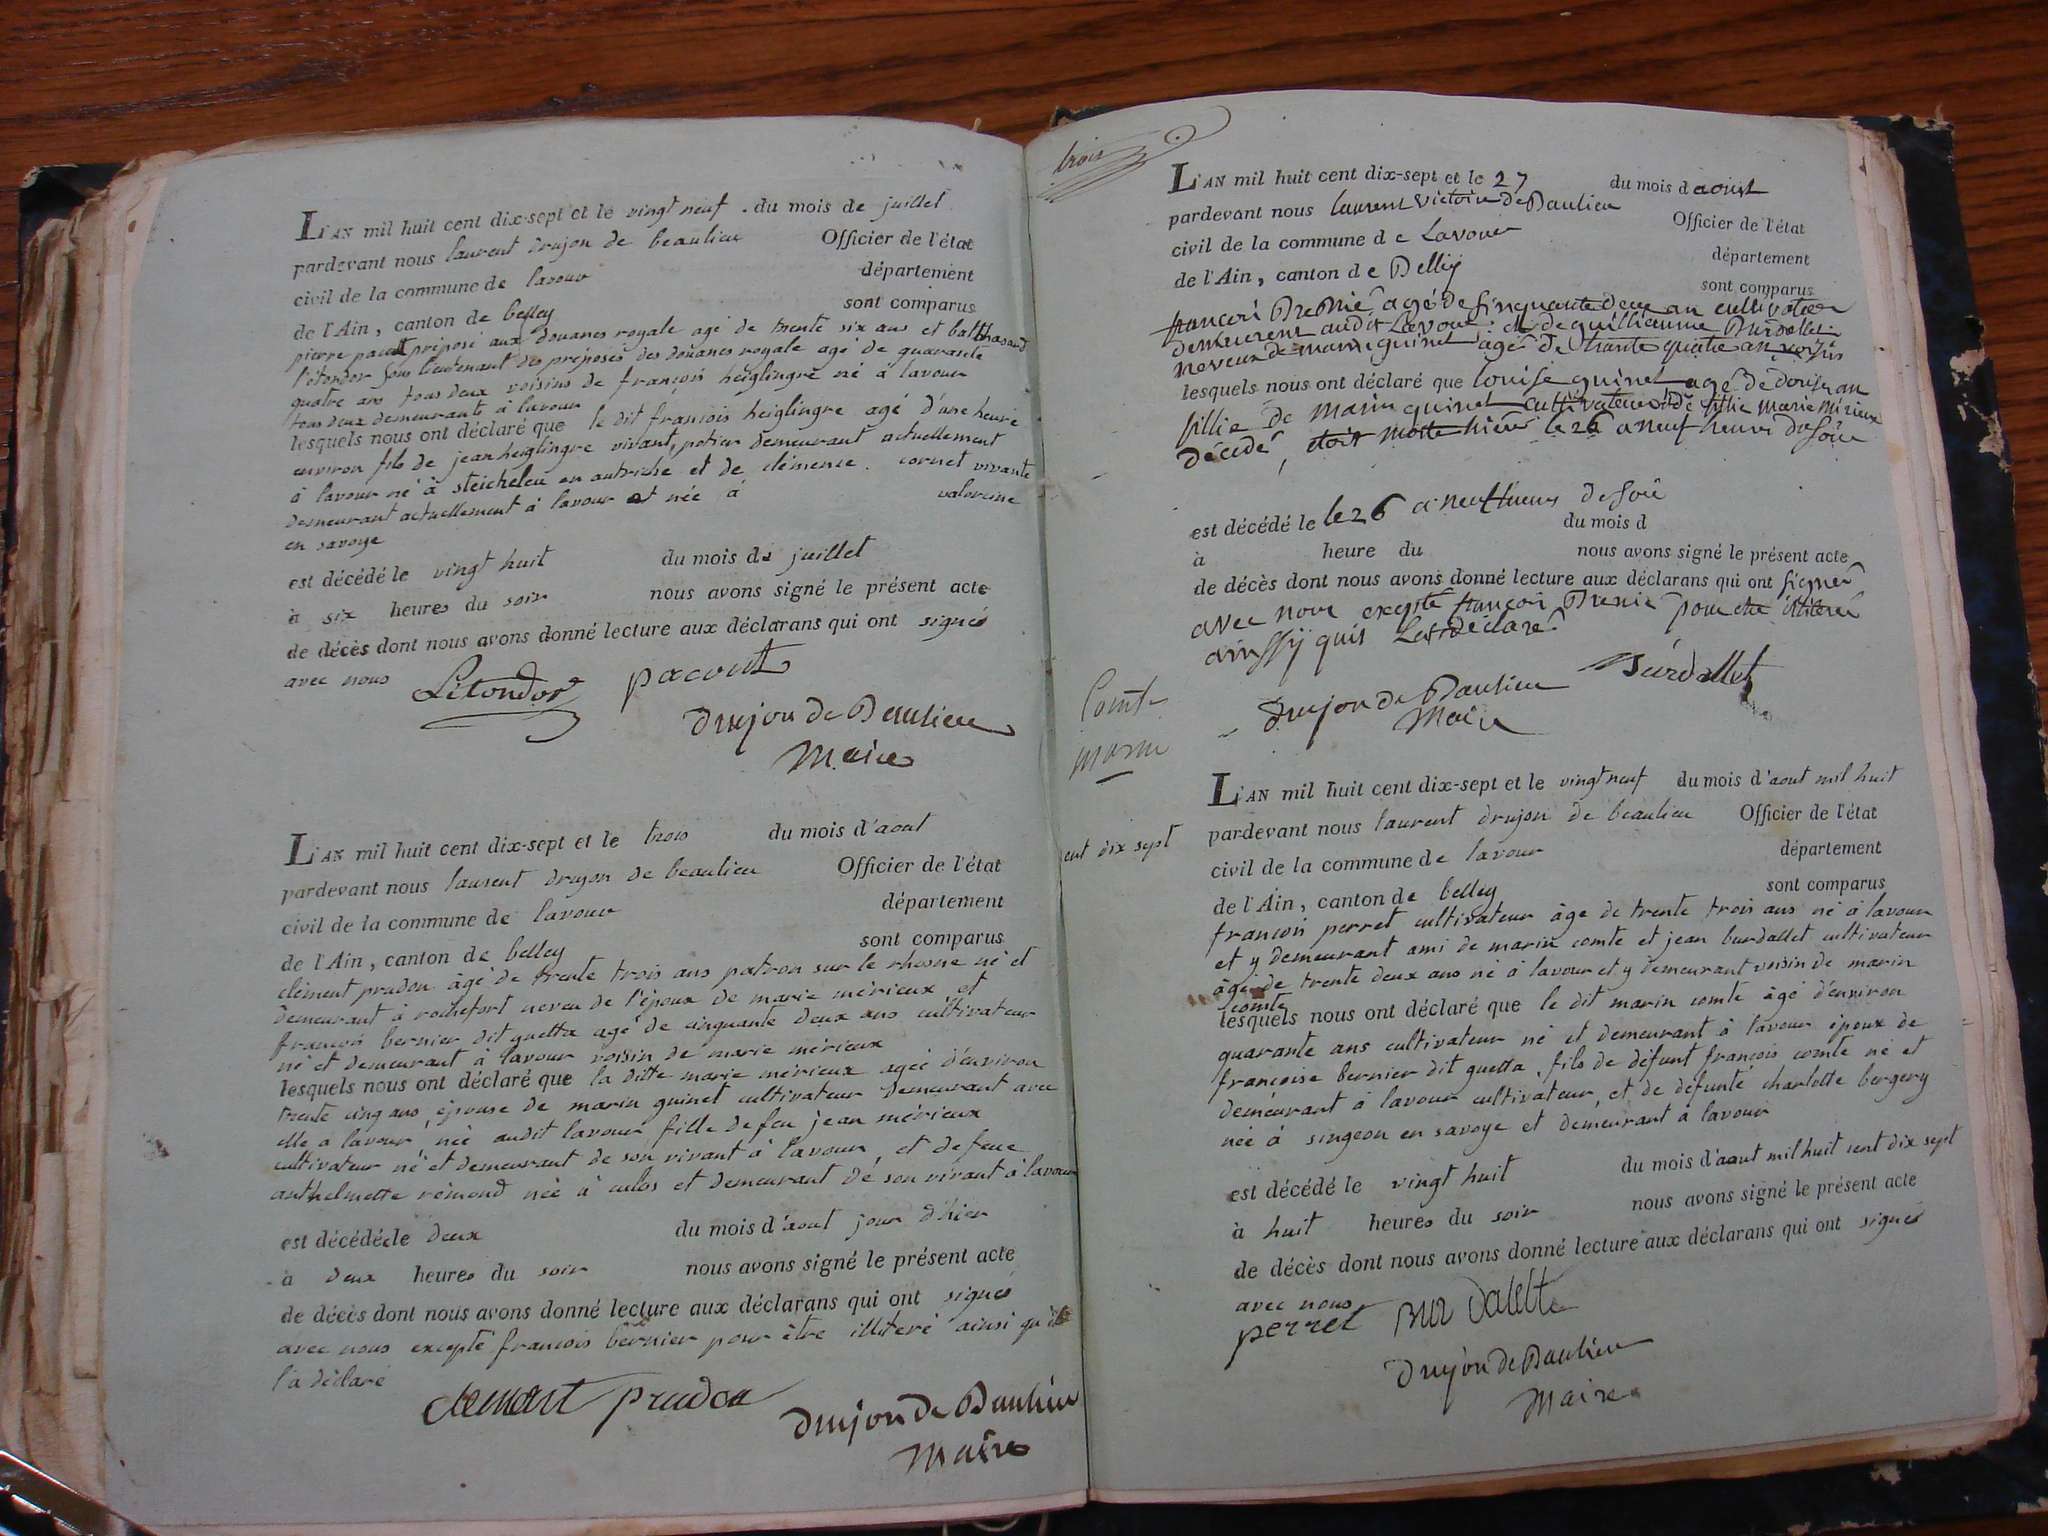 L'AN mil huit cent dix-sept et le vingt neuf du mois de juillet
pardevant nous laurent drujon de beaulieu Officier de l'état
civil de la commune de lavour département
de l'Ain, canton de belley sont comparus
pierre pacout préposé aux douanes royale agé de trente six ans et balthasard
létondor sous lieutenant des préposés des douanes royale agé de quarante
quatre ans tous deux voisins de françois heiglingre né à lavour
tous deux demeurants à lavour
lesquels nous ont déclaré que le dit françois heiglingre agé d'une heure
environ fils de jean heiglingre vivant, potier demeurant actuellement
à lavour né à steichelen en autriche et de clémence cornet vivante
demeurant actuellement à lavour et née à valorcine
en savoye
est décédé le vingt huit du mois de juillet
à six heures du soir nous avons signé le présent acte
de décès dont nous avons donné lecture aux déclarans qui ont signés
avec nous
Létondor pacout
Drujon de Beaulieu
Maire
L'AN mil huit cent dix-sept et le trois du mois d'aout
pardevant nous laurent drujon de beaulieu Officier de l'état
civil de la commune de lavour département
de l'Ain, canton de belley sont comparus
clément prudon âgé de trente trois ans patron sur le rhosne né et
demeurant à rochefort neveu de l'époux de marie mérieux et
françois bernier dit guetta agé de cinquante deux ans cultivateur
né et demeurant à lavour voisin de marie mérieux
lesquels nous ont déclaré que la ditte marie mérieux agée d'environ
trente cinq ans, épouse de marin guinet cultivateur demeurant avec
elle à lavour, née audit lavour fille de feu jean mérieux
cultivateur né et demeurant de son vivant à lavour, et de feue
anthelmette rémond née à culos et demeurant de son vivant à lavour
est décédée le deux du mois d'aout jour d'hier
à deux heures du soir nous avons signé le présent acte
de décès dont nous avons donné lecture aux déclarans qui ont signés
avec nous excepté françois bernier pour être illiteré ainsi qu'il
l'a déclaré
clement prudon
Drujon de Beaulieu
Maire
trois
L'AN mil huit cent dix-sept et le 27 du mois d aoust
pardevant nous laurent victoire de Baulieu Officier de l'état
civil de la commune d e Lavour département
de l'Ain, canton d e Belley sont comparus
françois Bernié agé de sinquante deux an cultivateur
demeurent audit Lavour et de guilliaume Burdallet
neveux de marin guinet agé de trante quatre an voisin
lesquels nous ont déclaré que louise guinet agé de douse an
fillie de marin guinet cultivateur et de marie Mérieux
décédé, etoit morte hier le 26 a neuf heure du soir
est décédé le le 26 a neuf heures de soir du mois d
à heure du nous avons signé le présent acte
de décès dont nous avons donné lecture aux déclarans qui ont signér
avec nous excepté françois Bernié pour etre illiteré
ainssy quil lat déclaré
Burdallet
Drujon de Baulieu
Maire
Comte
marin
L'AN mil huit cent dix-sept et le vingt neuf du mois d'aout mil huit
cent dix sept
pardevant nous laurent drujon de beaulieu Officier de l'état
civil de la commune de lavour département
de l'Ain, canton de belley sont comparus
françois perret cultivateur âge de trente trois ans né à lavour
et y demeurant ami de marin comte et jean burdallet cultivateur
âgé de trente deux ans né à lavour et y demeurant voisin de marin
comte
lesquels nous ont déclaré que le dit marin comte âgé d'environ
quarante ans cultivateur né et demeurant à lavour époux de
françoise bernier dit guetta, fils de défunt françois comte né et
demeurant à lavour cultivateur, et de défunte charlotte bergery
née à singeon en savoye et demeurant à lavour
est décédé le vingt huit du mois d'aout mil huit cent dix sept
à huit heures du soir nous avons signé le présent acte
de décès dont nous avons donné lecture aux déclarans qui ont signés
avec nous
perret Burdalet
Drujon de Baulieu
Maire